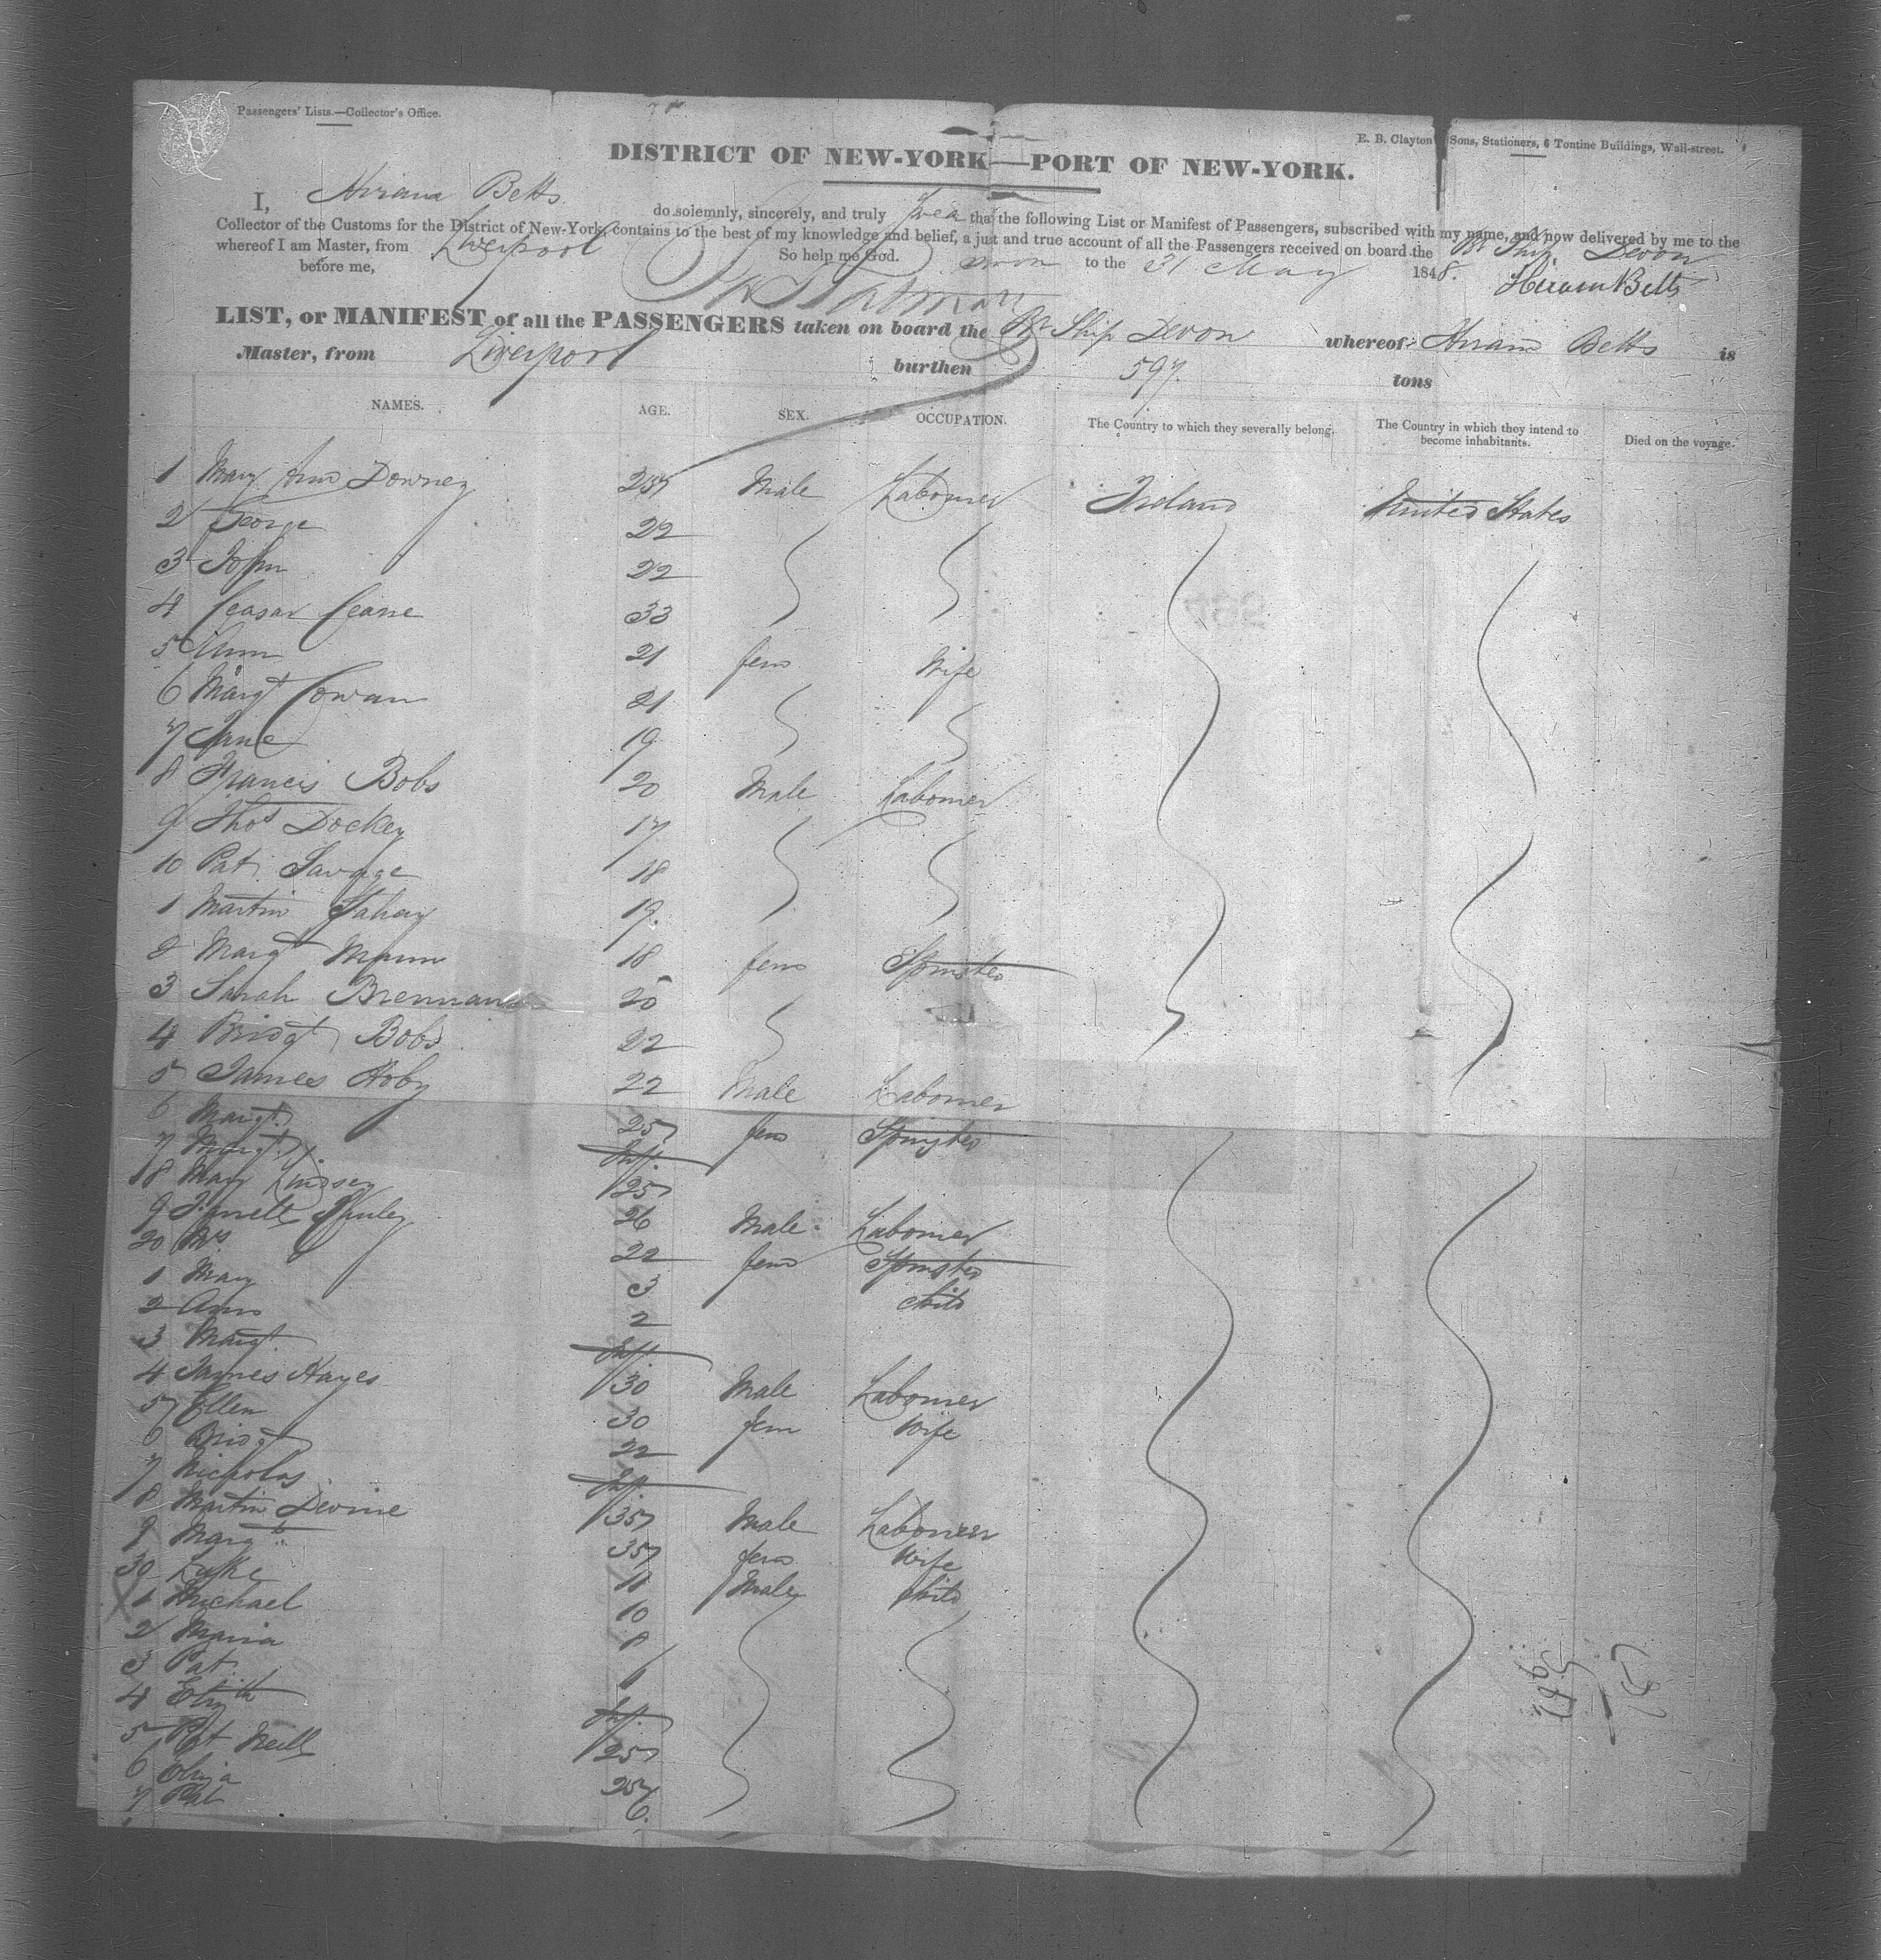 Passengers' Lists.—Collector's Office.
E. B. Clayton Sons, Stationers, 6 Tontine Buildings, Wall-street.
DISTRICT OF NEW-YORK—PORT OF NEW-YORK.
I, Hiram Betts do solemnly, sincerely, and truly that the following List or Manifest of Passengers, subscribed with my name, and now delivered by me to the
Collector of the Customs for the District of New-York, contains to the best of my knowledge and belief, a just and true account of all the Passengers received on board the Br Ship Devon
whereof I am Master, from Liverpool So help me God.
before me, to the 31 May 1848. Hiram Betts
LIST, or MANIFEST of all the PASSENGERS taken on board the Br Ship Devon whereof Hiram Betts is
Master, from Liverpool burthen 597 tons
NAMES. AGE. SEX. OCCUPATION. The Country to which they severally belong. The Country in which they intend to become inhabitants. Died on the voyage.
1 Mary Ann Downey 25 Male Labourer Ireland United States
2 George 22
3 John 22
4 Ceasar 33
5 Ann 21 fem Wife
6 Margt Cowan 21
7 Jane 19
8 Francis Bobs 20 Male Labourer
9 Thos Dockey 17
10 Pat Savage 18
1 Martin Fahey 19
2 Margt Mann 18 fem Spinster
3 Sarah Brennan 20
4 Bridgt Bobs 22
5 James Hoby 22 Male Labourer
6 Margt 25 fem Spinster
7 Margt Inft
18 Mary Lindsey 25
9 26 Male Labourer
20 Mrs 22 fem Spinster
1 Mary 3 Child
2 Ann 2
3 Margt Inft
4 James Hayes 30 Male Labourer
5 Ellen 30 fem Wife
6 Bridgt 22
7 Nicholas Inft
8 Martin Devine 35 Male Labourer
9 Margt 35 fem Wife
30 Luke 11 Male Child
1 Michael 10
2 Maria 8
3 Pat 6
4 Elizth Inft
5 Pat Neill 25
6 Eliza 25
7 Pat 6